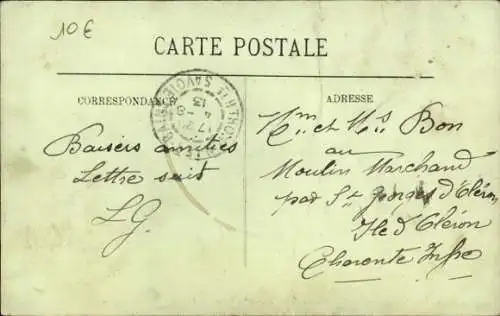 10€
CARTE POSTALE
CORRESPONDANCE
ADRESSE
Hte SAVOIE
17
4-8
13
Baisers amitiés
Lettre suit
LG.
et Bon
au
Moulin Marchand
par St Georges d'Oléron
Ile d'Oléron
Charente Infre